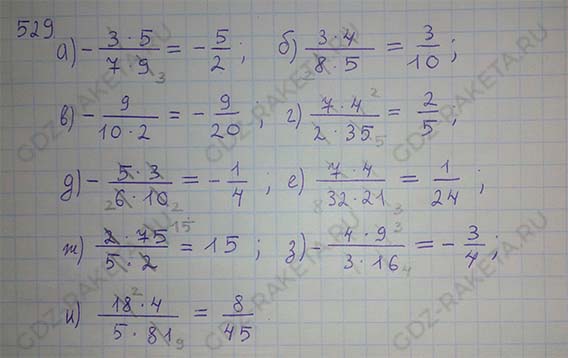 529
а) - 3 · 5 / 7 · 9 3 = - 5 / 2 ; б) 3 · 4 / 2 8 · 5 = 3 / 10 ;
в) - 9 / 10 · 2 = - 9 / 20 ; г) 7 · 4 2 / 2 · 35 5 = 2 / 5 ;
д) - 5 · 3 / 2 6 · 10 2 = - 1 / 4 ; е) 7 · 4 / 8 32 · 21 3 = 1 / 24 ;
ж) 2 · 75 15 / 5 · 2 = 15 ; з) - 4 · 9 3 / 3 · 16 4 = - 3 / 4 ;
и) 18 2 · 4 / 5 · 81 9 = 8 / 45
GDZ-RAKETA.RU